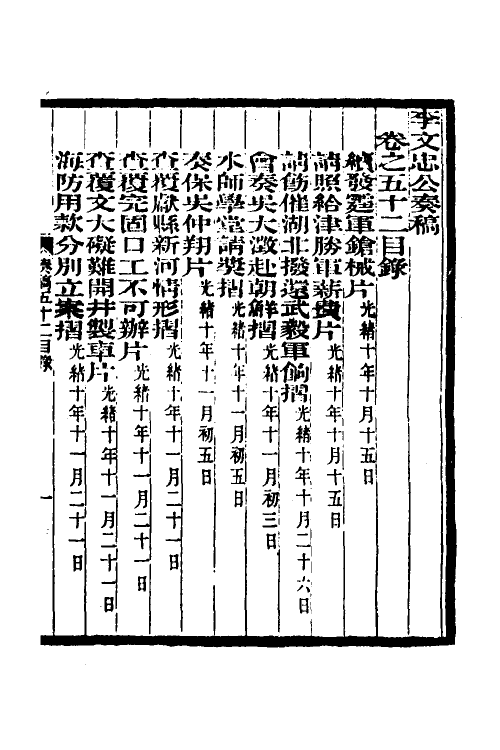 李文忠公奏稿
卷之五十二目錄
續發霆軍鎗械片光緒十年十月十五日
請照給津勝軍薪費片光緒十年十月十五日
請飭催湖北撥還武毅軍餉摺光緒十年十月二十六日
會奏吳大澂赴朝鮮摺光緒十年十一月初三日
水師學堂請獎摺光緒十年十一月初五日
奏保吳仲翔片光緒十年十一月初五日
查覆獻縣新河情形摺光緒十年十一月二十一日
查覆完固口工不可辦片光緒十年十一月二十一日
查覆文大礙難開井製車片光緒十年十一月二十一日
海防用款分別立案摺光緒十年十一月二十一日
奏稿五十二目錄
一